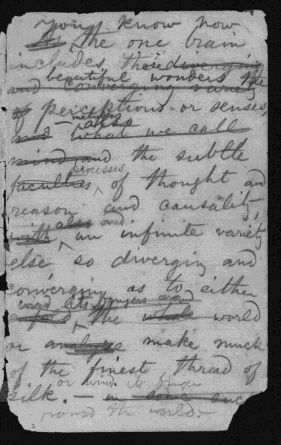 You know how
the one brain
includes, these diverging
beautiful wonders the
and converging variety
of perceptions or senses,
also
and what we call
mind, and the subtle
processes
faculties, of thought and
reason and causality,
also and
with an infinite variety
else, so diverging and
converging as to either
the whole world
or analyze make much
of the finest thread of
silk. — or wind its finger
round the world. —